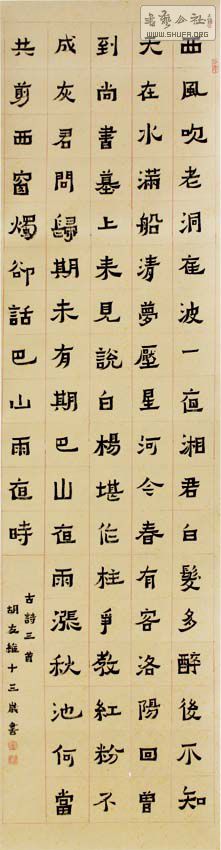 書藝公社
WWW.SHUFA.ORG
西風吹老洞庭波一夜湘君白髮多醉後不知
天在水滿船清夢壓星河今春有客洛陽回曾
到尚書墓上來見說白楊堪作柱爭教紅粉不
成灰君問歸期未有期巴山夜雨漲秋池何當
共剪西窗燭卻話巴山雨夜時
古詩三首
胡友十三歲書